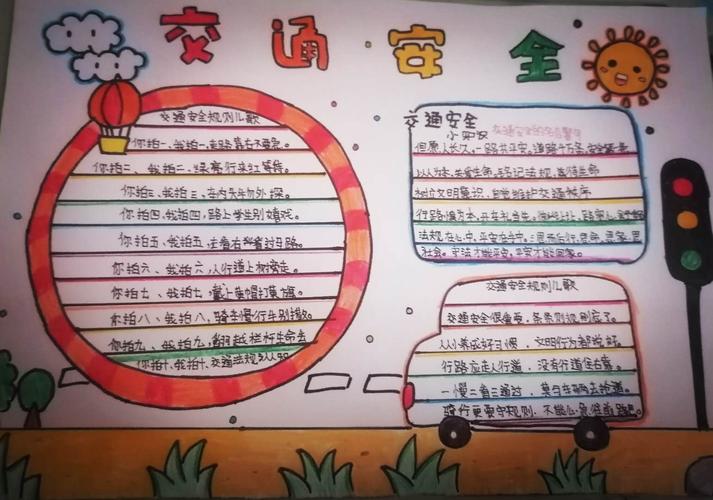 交通安全
交通安全规则儿歌
你拍一、我拍一、走路靠右不要急。
你拍二、我拍二、绿亮行来红等待。
你拍三、我拍三、车内头手勿外探。
你拍四、我拍四，路上学生别嬉戏。
你拍五、我拍五、过马路。
你拍六、我拍六，人行道上树旁走。
你拍七、我拍七，戴上黄帽打黄旗。
你拍八、我拍八，骑车慢行车别撞。
你拍九、我拍九，翻越栏杆生命去
你拍十、我拍十、交通法规
交通安全
小知识
交通安全的名言警句
但愿人长久，一路共平安，道路千万条，安全第一条
以人为本、关爱生命、珍得生命
树立文明意识，自觉维护交通秩序
行路
法规在心中，平安在手中。三思而后行，
社会。守法才能平安，平安才能回家。
交通安全规则儿歌
交通安全很重要，条条则规别忘了。
从小养成好习惯，文明行为都说好。
行路应走人行道，没有行道往右靠。
一慢二看三通过，莫与车辆去抢道。
骑行更要守规则，不能心急往前跑。